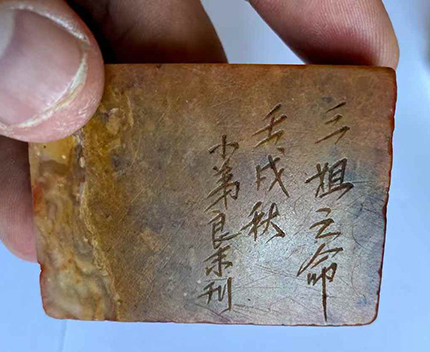 三姐之命
壬戌秋
小弟良未刊